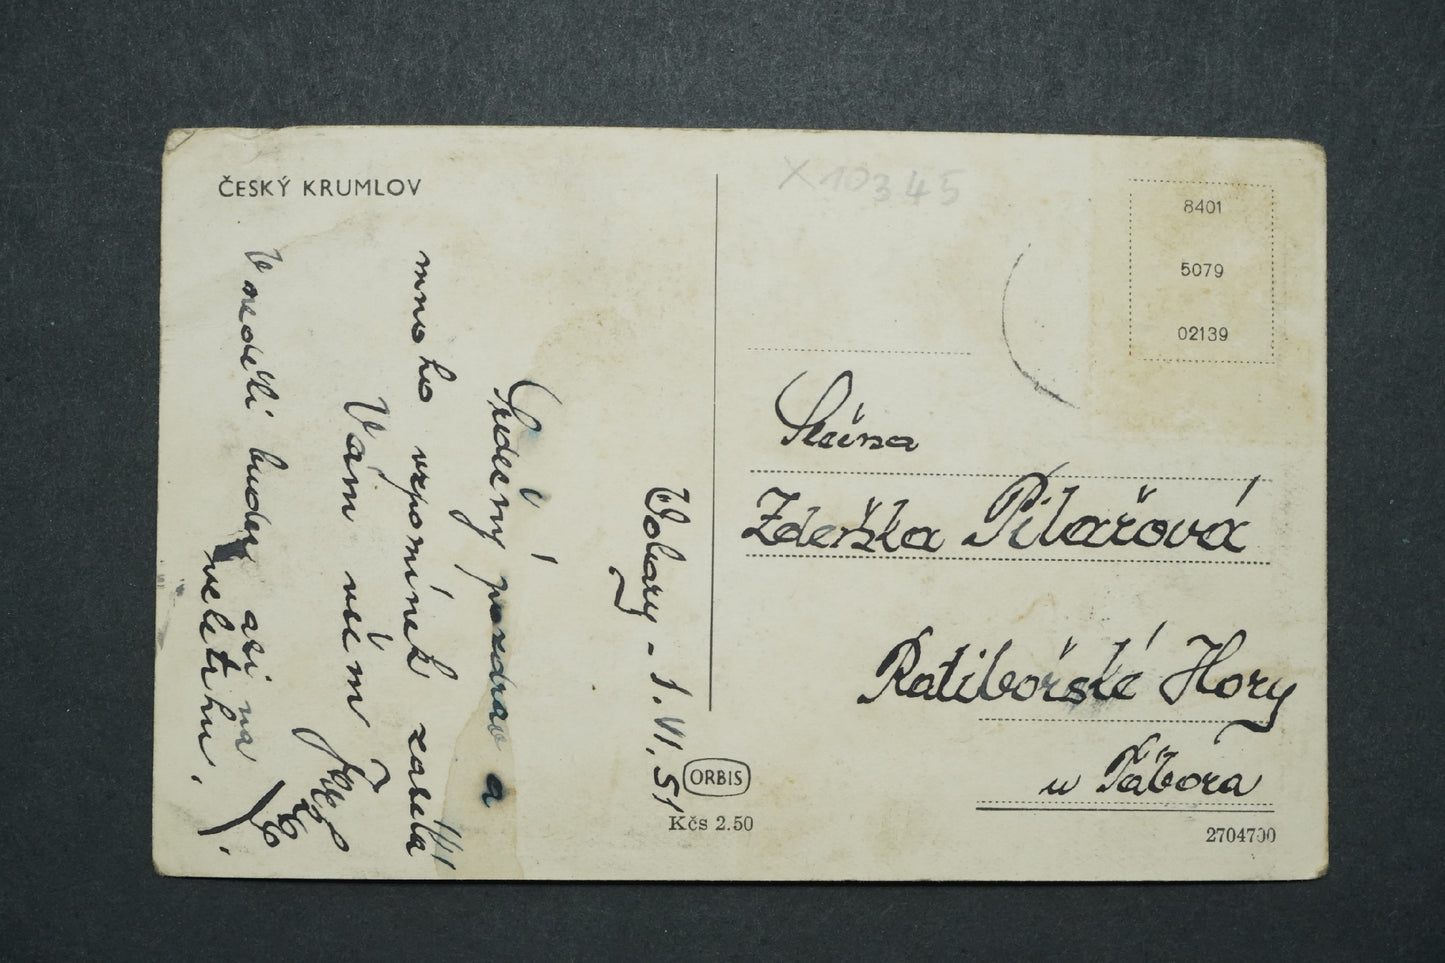 ČESKÝ KRUMLOV
X10345
8401
5079
02139
Volary - 1. VI. 51
Srdečný pozdrav a
mnoho vzpomínek zasílá
Vám všem
V neděli budu asi na
veletrhu.
Slečna
Zdeňka Pilařová
Ratibořské Hory
u Tábora
ORBIS
Kčs 2.50
2704700